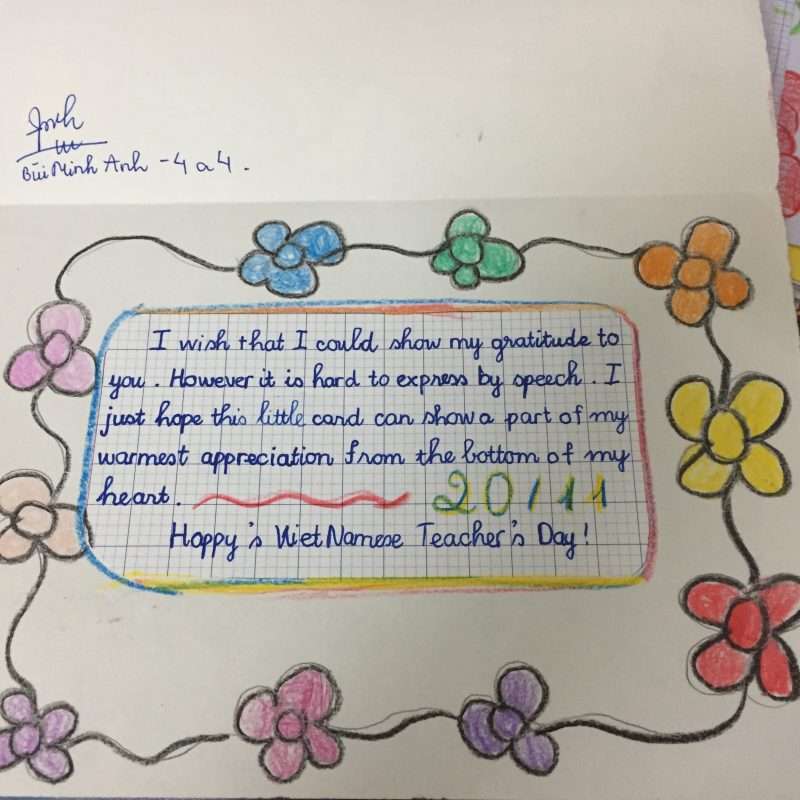 Anh
Bùi Minh Anh - 4a4.
I wish that I could show my gratitude to
you. However it is hard to express by speech. I
just hope this little card can show a part of my
warmest appreciation from the bottom of my
heart. 20/11
Happy's VietNamese Teacher's Day!